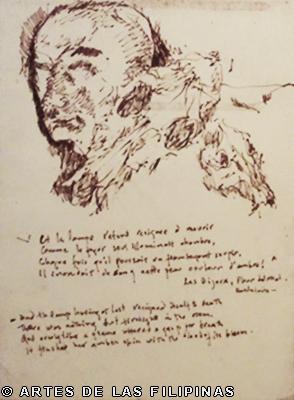 Et la lampe s'étant résignée à mourir
Comme le foyer seul illuminait la chambre,
Chaque fois qu'il poussait un flamboyant soupir,
Il inondait de sang cette peau couleur d'ambre!
Les Bijoux, Fleurs du mal.
Baudelaire
- And the lamp having at last resigned itself to death
There was nothing but firelight in the room
And every time a flame uttered a gasp for breath
It flushed her amber skin with the blood of its bloom.
© ARTES DE LAS FILIPINAS